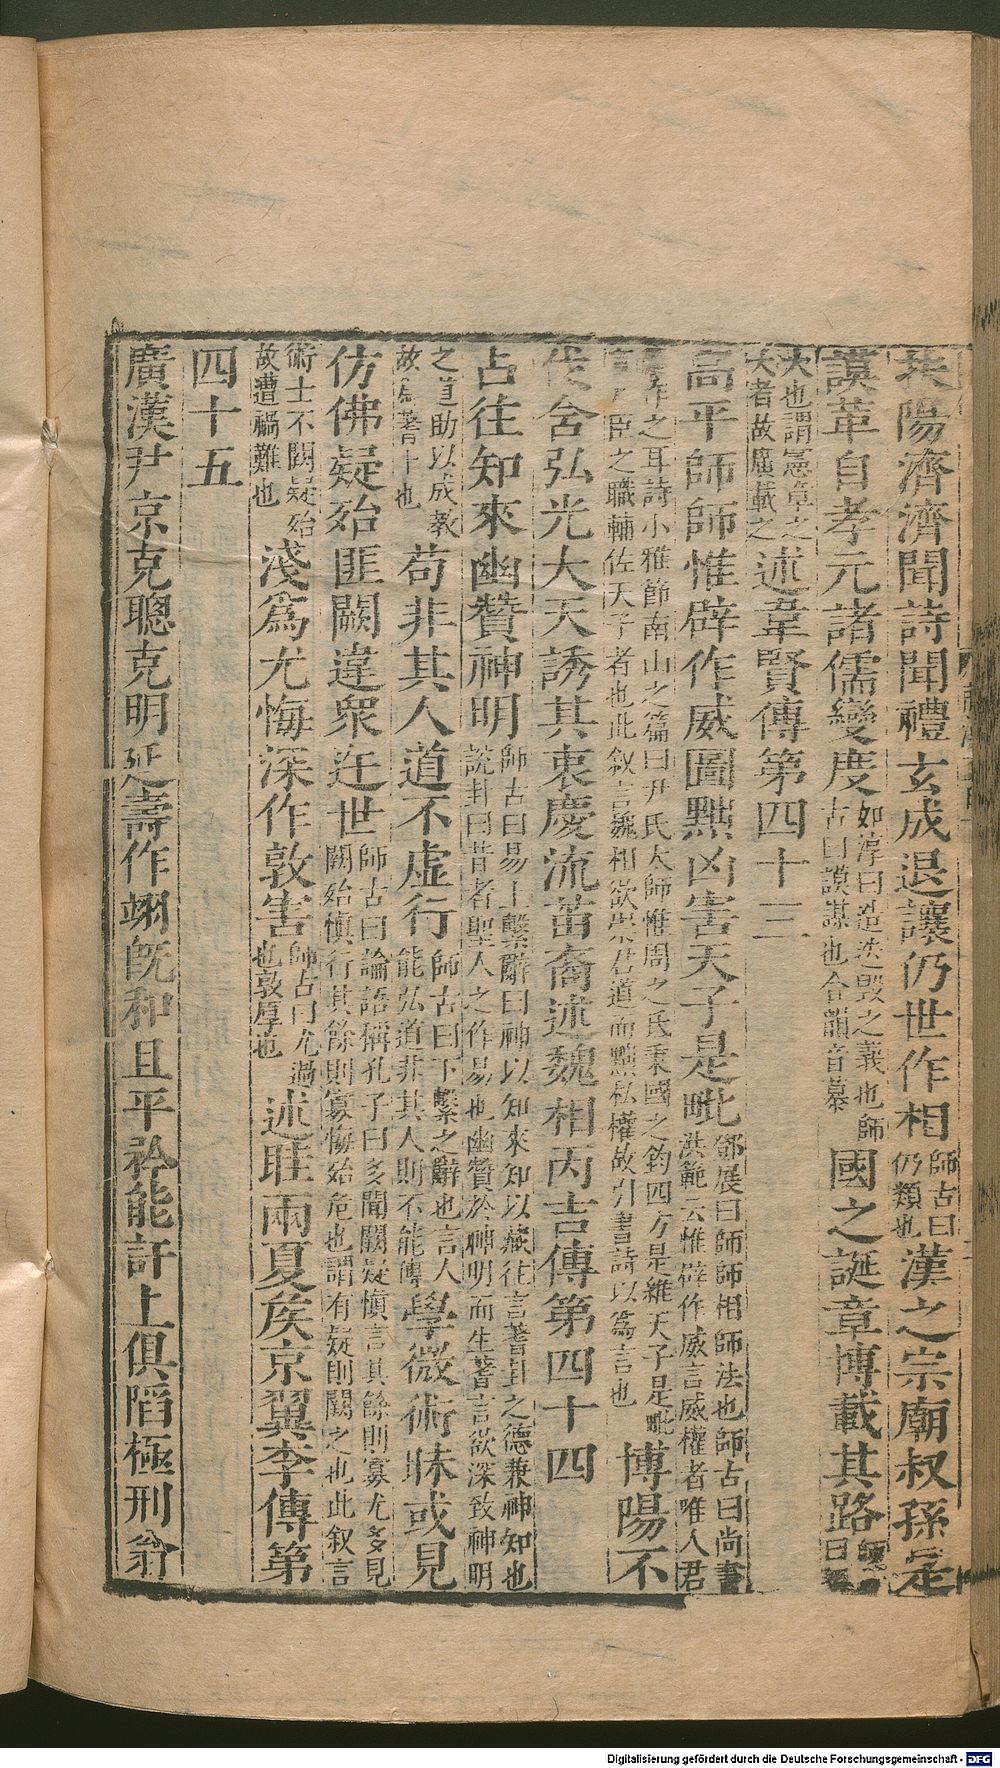 扶陽濟濟聞詩聞禮玄成退讓仍世作相師古曰仍類也漢之宗廟叔孫是
謨革自孝元諸儒變度如淳曰造迭毀之義也師古曰謨謀也合韻音慕國之誕章博載其路師曰
大也謂憲章之大者故廣載之述韋賢傳第四十三
高平師師惟辟作威圖黜凶害天子是毗鄧展曰師師相師法也師古曰尚書洪範云惟辟作威言威權者唯人君
作之耳詩小雅節南山之篇曰尹氏大師惟周之氐秉國之鈞四方是維天子是毗言臣之職輔佐天子者也此敘言魏相欲崇君道而黜私權故引書詩以為言也博陽不
伐含弘光大天誘其衷慶流苗裔述魏相丙吉傳第四十四
占往知來幽贊神明師古曰易上繫辭曰神以知來知以藏往言蓍卦之德兼神知也說卦曰昔者聖人之作易也幽贊於神明而生蓍言欲深致神明
之道助以成教故為蓍卜也苟非其人道不虛行師古曰下繫之辭也言人能弘道非其人則不能傳學微術昧或見
仿佛疑殆匪闕違眾迕世師古曰論語稱孔子曰多聞闕疑慎言其餘則寡尤多見闕殆慎行其餘則寡悔殆危也謂有疑則闕之也此敘言
術士不闕疑殆故遭禍難也淺為尤悔深作敦害師古曰尤過也敦厚也述眭兩夏侯京翼李傳第
四十五
廣漢尹京克聰克明延壽作翊旣和且平矜能訐上俱陷極刑翁
Digitalisierung gefördert durch die Deutsche Forschungsgemeinschaft - DFG